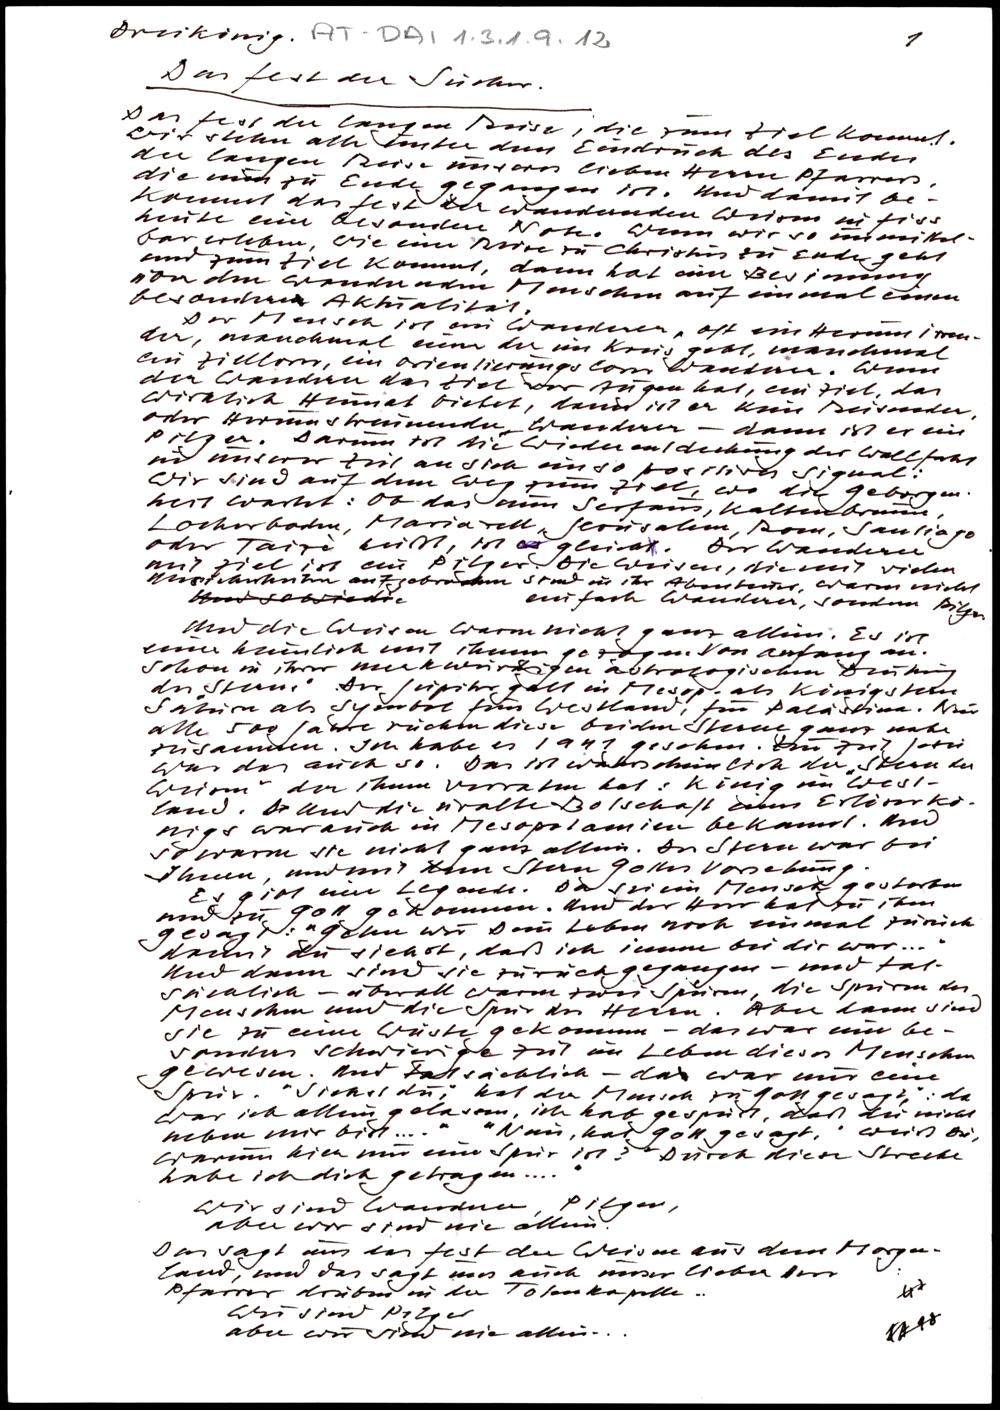 Dreikönig. AT-DAI 1.3.1.9.12 1
Das Fest der Sucher.
Das Fest der langen Reise, die zum Ziel kommt.
Wir stehn alle unter dem Eindruck des Endes
der langen Reise unseres lieben Herrn Pfarrers,
die nun zu Ende gegangen ist. Und damit be-
kommt das Fest der wandernden Weisen
heute eine besondere Note. Wenn wir so unmittel-
bar erleben, wie eine Reise zu Christus zu Ende geht
und zum Ziel kommt, dann hat eine Besinnung
von den wandernden Menschen auf einmal einen
besonderen Aktualität.
Der Mensch ist ein Wanderer, oft ein Herumirren-
der, manchmal einer der im Kreis geht, manchmal
ein zielloser, ein orientierungsloser Wanderer. Wenn
der Wanderer das Ziel vor Augen hat, ein Ziel, das
wirklich Heimat bietet, dann ist er kein Reisender,
oder Herumstreunender Wanderer – dann ist er ein
Pilger. Darum ist die Wiederentdeckung der Wallfahrt
in unserer Zeit an sich ein so positives Signal:
Wir sind auf dem Weg zum Ziel, wo die Geborgen-
heit wartet: Ob das nun Serfaus, Kaltenbrunn,
Locherboden, Mariazell, Jerusalem, Rom, Santiago
oder Taizé heißt, ist gleich. Der Wanderer
mit Ziel ist ein Pilger. Die Weisen, die mit vielen
Unsicherheiten aufgebrochen sind in ihr Abenteuer, waren nicht
einfach Wanderer, sondern Pilger
Und die Weisen waren nicht ganz allein. Es ist
einer heimlich mit ihnen gezogen von Anfang an.
Schon in ihrer merkwürdigen astrologischen Deutung
der Sterne: Der Jupiter galt in Mesop. als Königstern
Saturn als Symbol fürs Westland, für Palästina. Nur
alle 500 Jahre rücken diese beiden Sterne ganz nahe
zusammen. Ich habe es 1941 gesehen. Zur Zeit Jesu
war das auch so. Das ist wahrscheinlich der „Stern der
Weisen" der ihnen verraten hat: König im West-
land. Und die uralte Botschaft eines Erlöserkö-
nigs war auch in Mesopotamien bekannt. Und
so waren sie nicht ganz allein. Der Stern war bei
ihnen, und mit dem Stern Gottes Vorsehung.
Es gibt eine Legende. Da sei ein Mensch gestorben
und zu Gott gekommen. Und der Herr hat zu ihm
gesagt: "Gehen wir Dein Leben noch einmal zurück
damit Du siehst, daß ich immer bei dir war..."
Und dann sind sie zurückgegangen – und tat-
sächlich – überall waren zwei Spuren, die Spuren des
Menschen und die Spur des Herrn. Aber dann sind
sie zu einer Wüste gekommen – das war eine be-
sonders schwierige Zeit im Leben dieses Menschen
gewesen. Und tatsächlich – da war nur eine
Spur. "Siehst du," hat der Mensch zu Gott gesagt,": da
war ich allein gelassen, ich hab gespürt, daß du nicht
neben mir bist...." "Nein, hat Gott gesagt," weißt Du,
warum hier nur eine Spur ist? Durch diese Strecke
habe ich dich getragen...."
Wir sind Wanderer, Pilger,
aber wir sind nie allein.
Das sagt uns das Fest der Weisen aus dem Morgen-
land, und das sagt uns auch unser lieber Herr
Pfarrer drüben in der Totenkapelle..
Wir sind Pilger
aber wir sind nie allein...